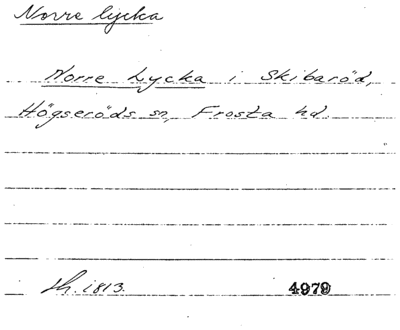 Norre lycka
Norre Lycka i Skibaröd,
Högseröds sn, Frosta hd.
sk. 1813.
4979